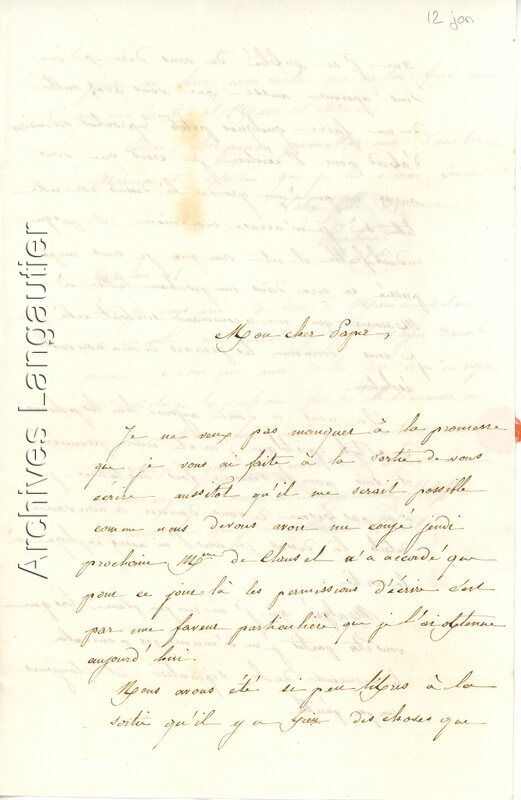 12 jan
Mon cher Papa,
Je ne veux pas manquer à la promesse
que je vous ai faite à la sortie de vous
écrire aussitot qu'il me serait possible
comme nous devons avoir un congé jeudi
prochain Mme de Clausel n'a accordé que
pour ce jour là les permissions d'écrire c'est
par une faveur particulière que je l'ai obtenue
aujourd'hui.
Nous avons été si peu libres à la
sortie qu'il y a des choses que
Archives Langautier